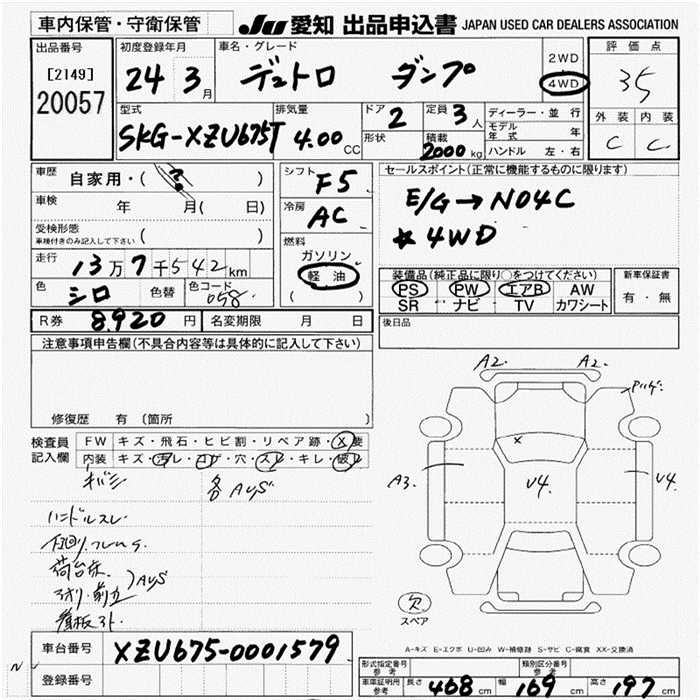 車内保管・守衛保管
JU 愛知 出品申込書 JAPAN USED CAR DEALERS ASSOCIATION
出品番号
[2149]
20057
初度登録年月
24 3月
車名・グレード
デュトロ ダンプ
2WD
4WD
評価点
3.5
外装 内装
C C
型式
SKG-XZU675T
排気量
4.00 CC
ドア
2
形状
定員
3人
積載
2000 kg
ディーラー・並行
モデル年式 年
ハンドル 左・右
車歴
自家用・( )
車検
年 月( 日)
受検形態
車検付きのみ記入して下さい ( )
走行
13万7千542km
色
シロ
色替
色コード
058
シフト
F5
冷房
AC
燃料
ガソリン
軽油
( )
セールスポイント(正常に機能するものに限ります)
E/G→N04C
★4WD
装備品(純正品に限り○をつけてください)
PS PW エアB AW
SR ナビ TV カワシート
新車保証書
有・無
R券 8,920円
名変期限 月 日
後日品
注意事項申告欄(不具合内容等は具体的に記入して下さい)
修復歴 有 〔箇所 〕
検査員
記入欄
FW キズ・飛石・ヒビ割・リペア跡・X要
内装 キズ・汚レ・コゲ・穴・スレ・キレ・破レ
キバミ
各AUS
ハンドルスレ
下回り.フレームS
荷台床
アオリ・前立
AUS
看板ネト.
A2. A2.
A3. V4. V4.
欠
スペア
A-キズ E-エクボ U-凹み W-補修跡 S-サビ C-腐食 XX-交換済
車台番号
XZU675-0001579
登録番号
N
形式指定番号
参考
類別区分番号
参考
車庫証明用
参考
長さ 468cm 幅 169cm 高さ 197cm